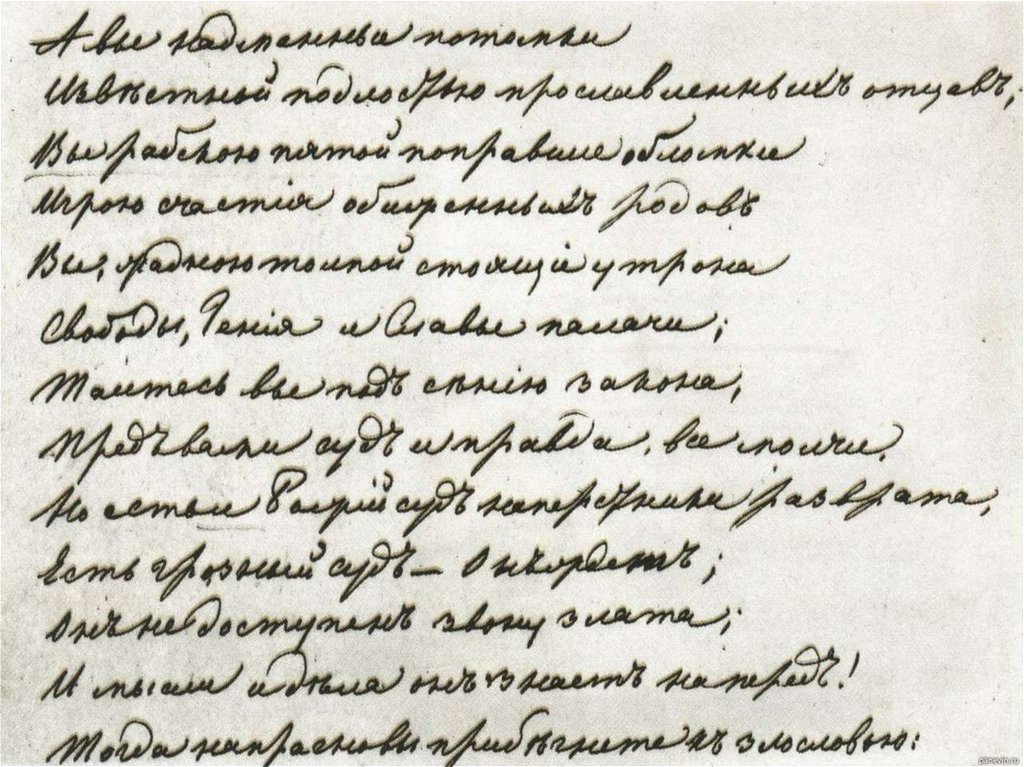 А вы надменные потомки
Извѣстной подлостью прославленныхъ отцевъ,
Вы рабскою пятой поправшие обломки
Игрою счастія обиженныхъ родовъ
Вы, жадною толпой стоящіе у трона
Свободы, Генія и Славы палачи;
Таитесь вы подъ сѣнію закона,
Предъ вами судъ и правда, все молчи.
Но есть и Божій судъ наперстники разврата,
Есть грозный судъ — Онъ ждетъ;
Онъ не доступенъ звону злата;
И мысли и дѣла онъ знаетъ напередъ!
Тогда напрасно вы прибѣгнете къ злословью:
panevin.ru